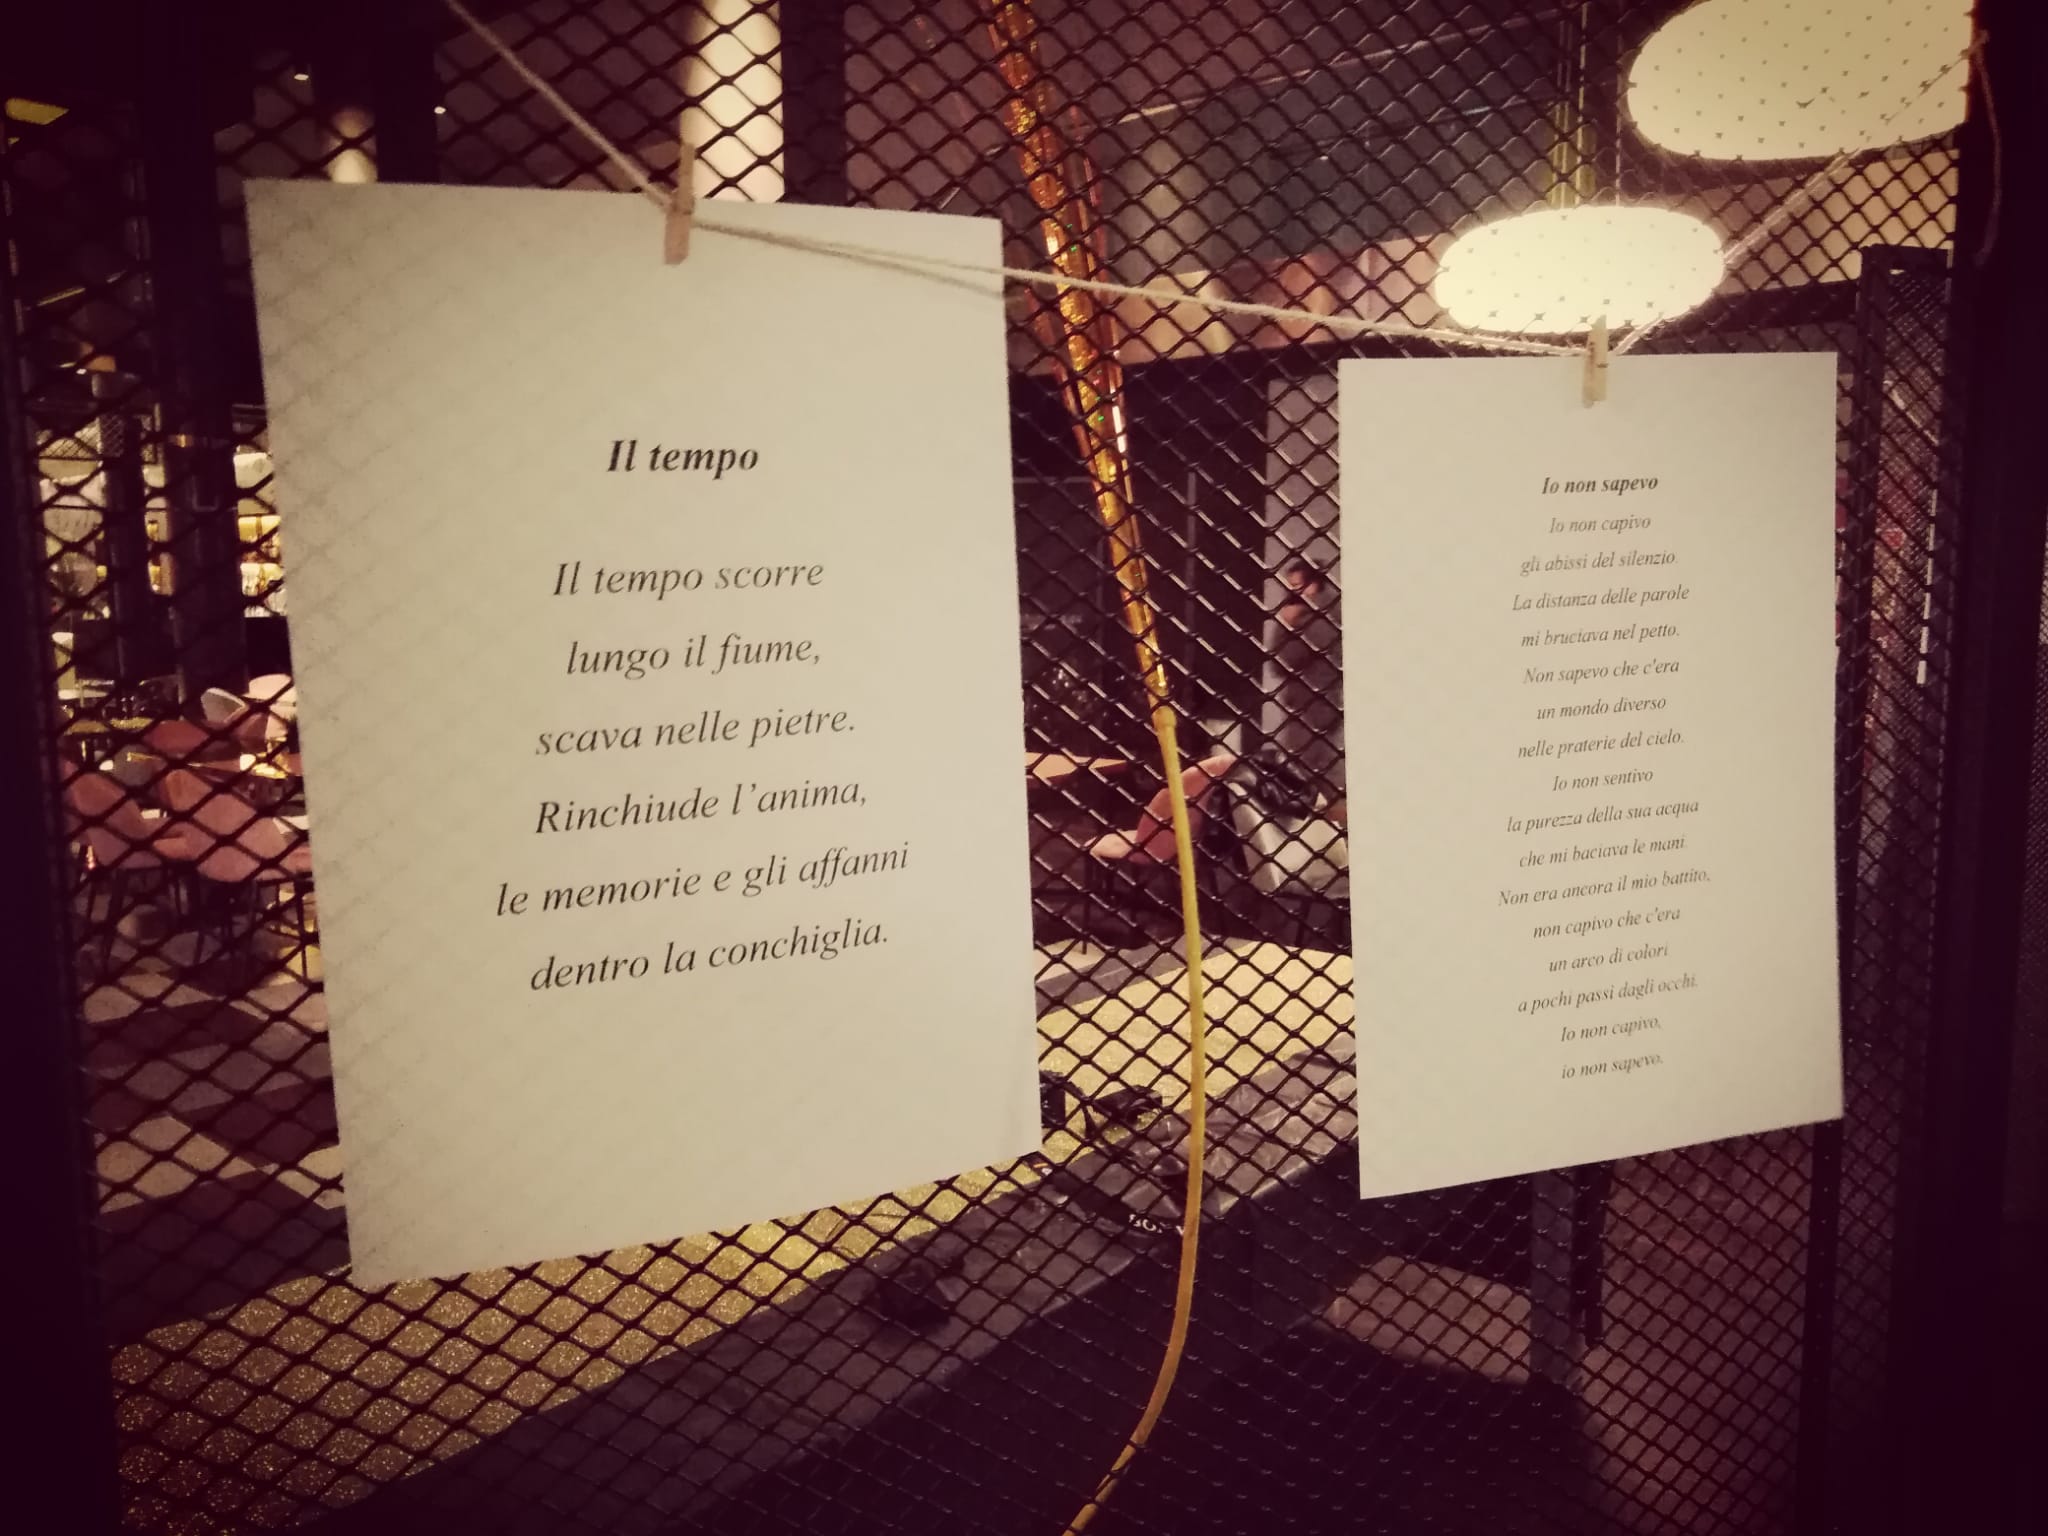 Il tempo
Il tempo scorre
lungo il fiume,
scava nelle pietre.
Rinchiude l’anima,
le memorie e gli affanni
dentro la conchiglia.
Io non sapevo
Io non capivo
gli abissi del silenzio.
La distanza delle parole
mi bruciava nel petto.
Non sapevo che c'era
un mondo diverso
nelle praterie del cielo.
Io non sentivo
la purezza della sua acqua
che mi baciava le mani.
Non era ancora il mio battito,
non capivo che c'era
un arco di colori
a pochi passi dagli occhi.
Io non capivo,
io non sapevo.